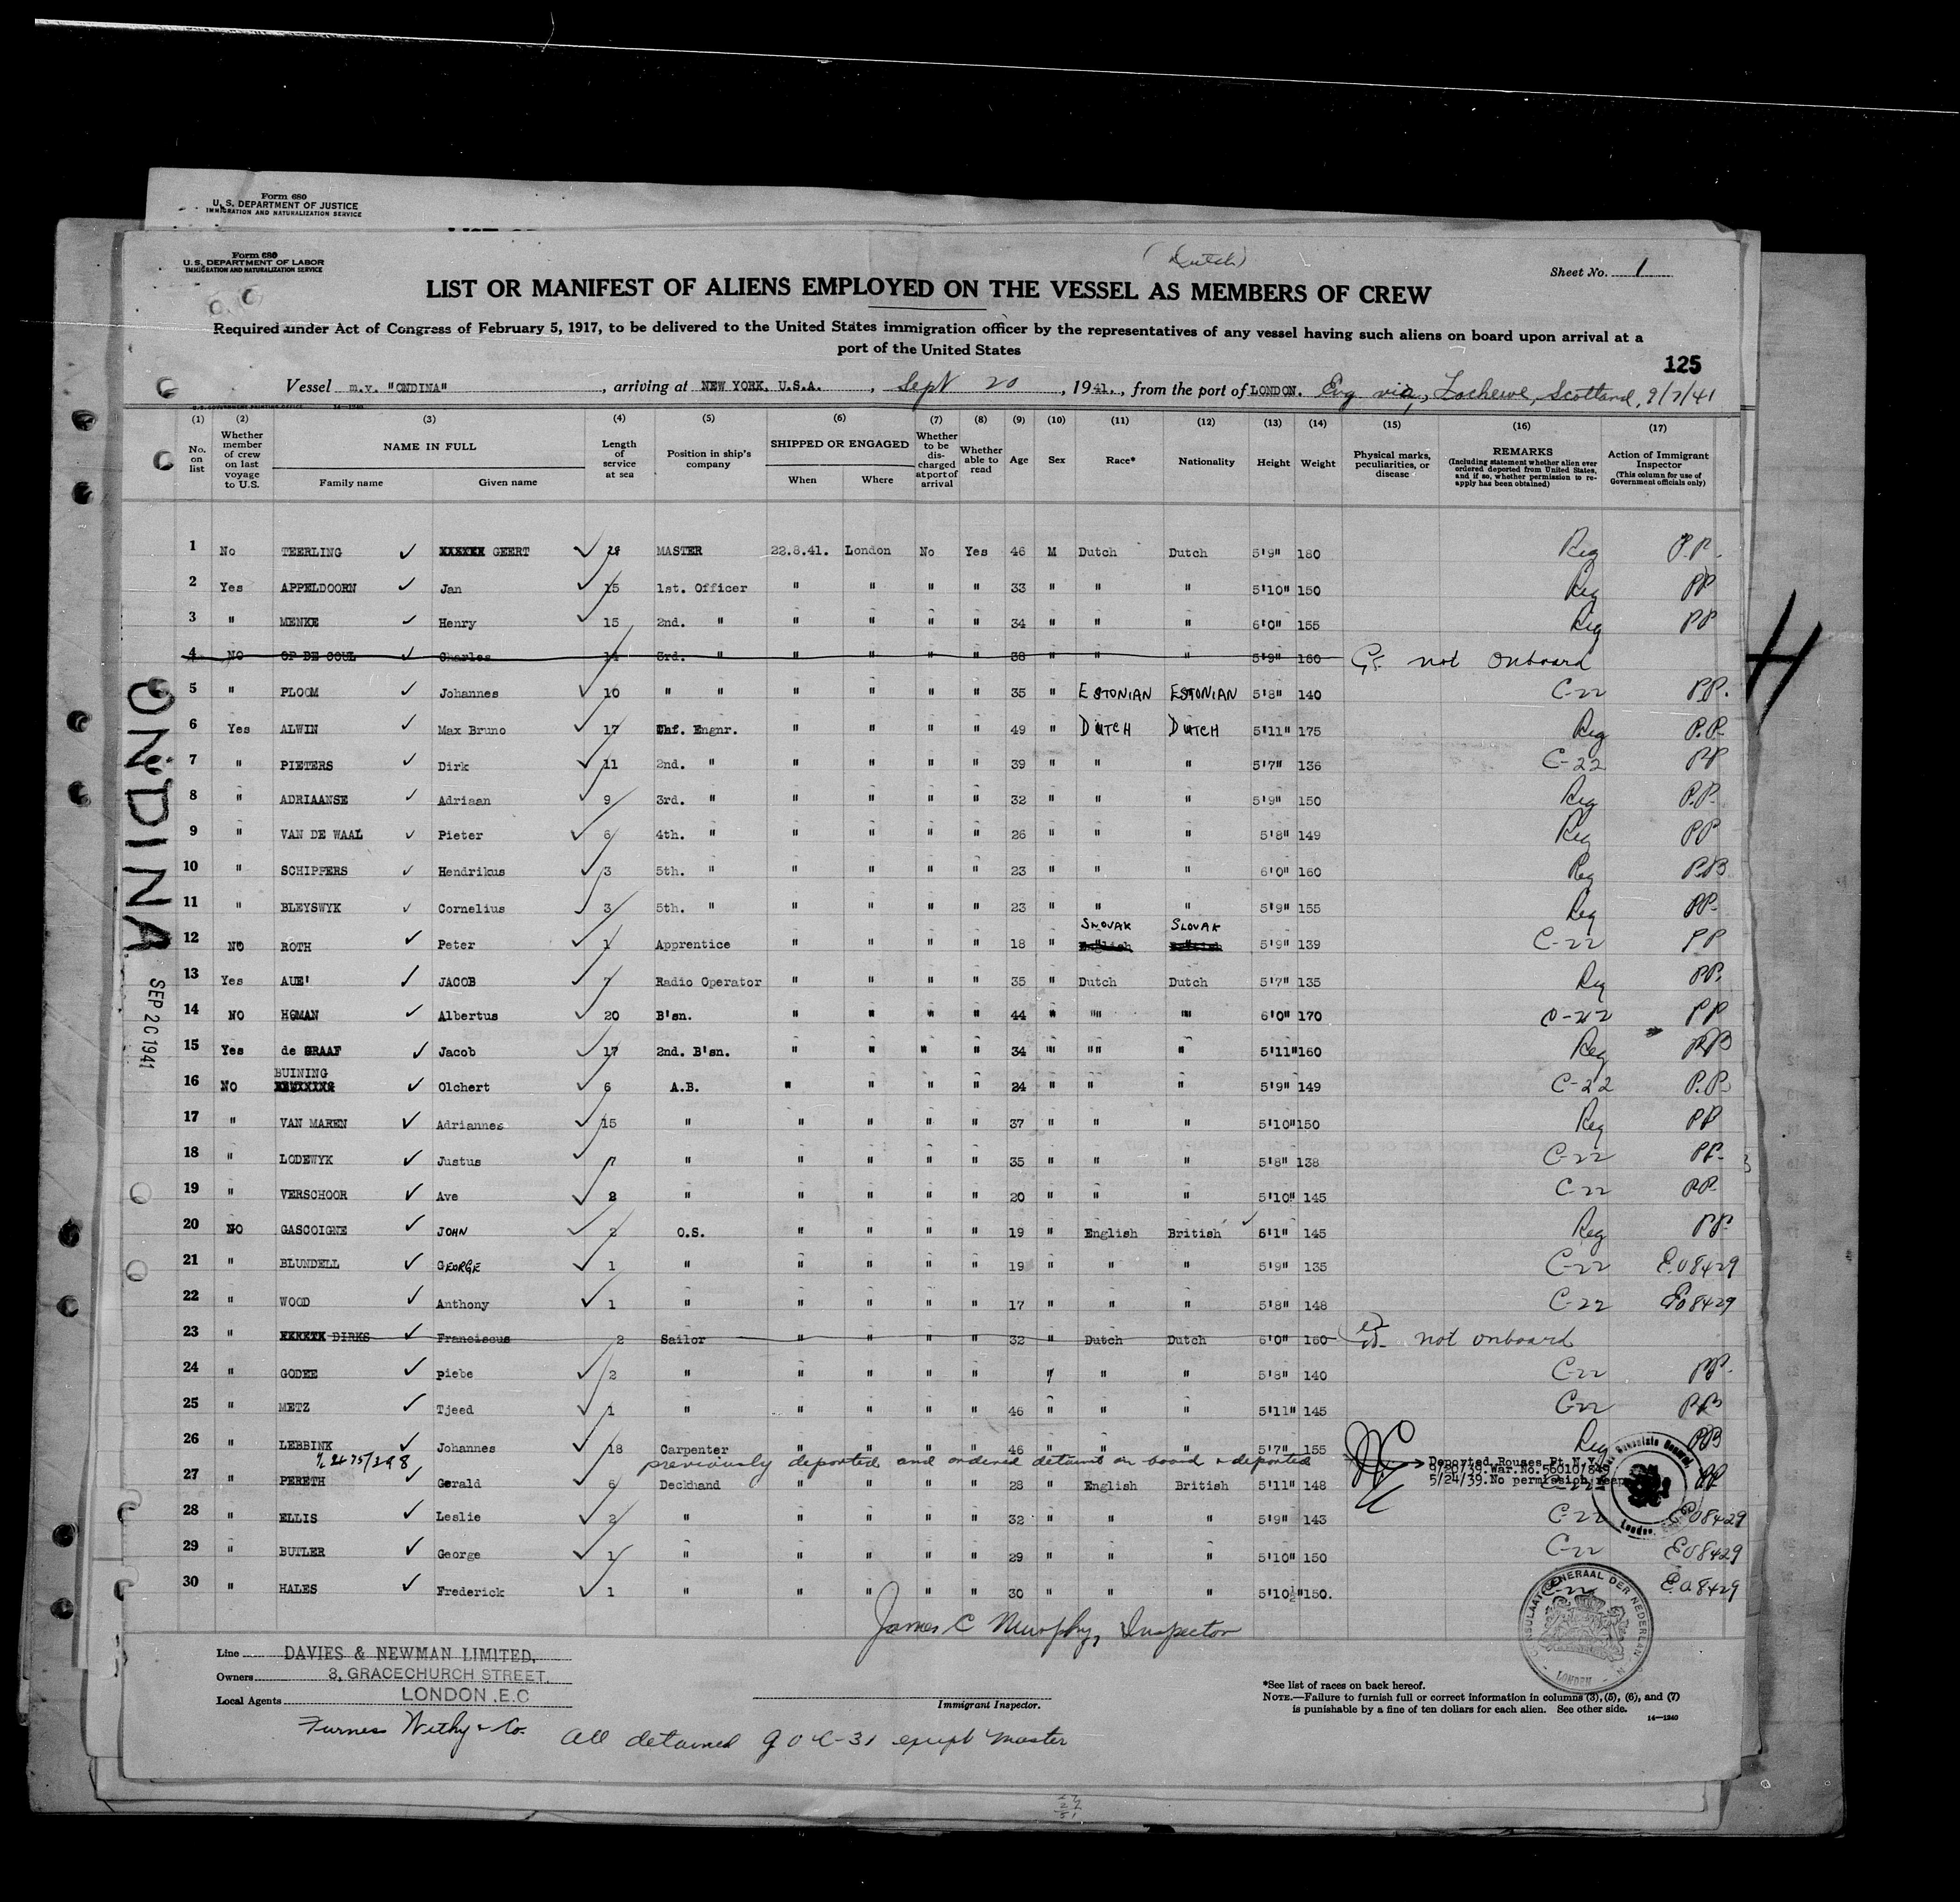 Form 680
U. S. DEPARTMENT OF JUSTICE
IMMIGRATION AND NATURALIZATION SERVICE
Form 680
U. S. DEPARTMENT OF LABOR
IMMIGRATION AND NATURALIZATION SERVICE
(Dutch)
Sheet No. 1
LIST OR MANIFEST OF ALIENS EMPLOYED ON THE VESSEL AS MEMBERS OF CREW
Required under Act of Congress of February 5, 1917, to be delivered to the United States immigration officer by the representatives of any vessel having such aliens on board upon arrival at a
port of the United States
125
Vessel m.v. "ONDINA", arriving at NEW YORK. U.S.A., Sept 20, 1941., from the port of LONDON. Eng via, Lochewe, Scotland, 9/7/41
(1) (2) (3) (4) (5) (6) (7) (8) (9) (10) (11) (12) (13) (14) (15) (16) (17)
No. on list
Whether member of crew on last voyage to U.S.
NAME IN FULL
Family name Given name
Length of service at sea
Position in ship's company
SHIPPED OR ENGAGED
When Where
Whether to be discharged at port of arrival
Whether able to read
Age Sex Race* Nationality Height Weight
Physical marks, peculiarities, or disease
REMARKS
(Including statement whether alien ever ordered deported from United States, and if so, whether permission to reapply has been obtained)
Action of Immigrant Inspector
(This column for use of Government officials only)
1 No TEERLING GEERT MASTER 22.8.41. London No Yes 46 M Dutch Dutch 5'9" 180 Reg P.P.
2 Yes APPELDOORN Jan 15 1st. Officer " " " " 33 " " " 5'10" 150 Reg PP
3 " MENKE Henry 15 2nd. " " " " " 34 " " " 6'0" 155 Reg PP
4 NO OP DE COUL Charles 14 3rd. " " " " " 38 " " " 5'9" 160 not onboard
5 " PLOOM Johannes 10 " " " " " " 35 " ESTONIAN ESTONIAN 5'8" 140 C-22 P.P.
6 Yes ALWIN Max Bruno 17 Chf. Engnr. " " " " 49 " DUTCH DUTCH 5'11" 175 Reg P.P.
7 " PIETERS Dirk 11 2nd. " " " " " 39 " " " 5'7" 136 C-22 PP
8 " ADRIAANSE Adriaan 9 3rd. " " " " " 32 " " " 5'9" 150 Reg P.P.
9 " VAN DE WAAL Pieter 6 4th. " " " " " 26 " " " 5'8" 149 Reg PP
10 " SCHIPPERS Hendrikus 3 5th. " " " " " 23 " " " 6'0" 160 Reg P.P.
11 " BLEYSWYK Cornelius 3 5th. " " " " " 23 " " " 5'9" 155 Reg PP.
SLOVAK SLOVAK
12 NO ROTH Peter 1 Apprentice " " " " 18 " English British 5'9" 139 C-22 PP
13 Yes AUE' JACOB 7 Radio Operator " " " " 35 " Dutch Dutch 5'7" 135 Reg PP.
14 NO HOMAN Albertus 20 B'sn. " " " " 44 " " " 6'0" 170 C-22 PP
15 Yes de GRAAF Jacob 17 2nd. B'sn. " " " " 34 " " " 5'11" 160 Reg PP
BUINING
16 No Olchert 6 A.B. " " " " 24 " " " 5'9" 149 C-22 P.P.
17 " VAN MAREN Adriannes 15 " " " " " 37 " " " 5'10" 150 Reg PP
18 " LODEWYK Justus 7 " " " " " 35 " " " 5'8" 138 C-22 PP.
19 " VERSCHOOR Ave 2 " " " " " 20 " " " 5'10" 145 C-22 PP.
20 NO GASCOIGNE JOHN 2 O.S. " " " " 19 " English British 6'1" 145 Reg PP.
21 " BLUNDELL GEORGE 1 " " " " " 19 " " " 5'9" 135 C-22 E.O 8429
22 " WOOD Anthony 1 " " " " " 17 " " " 5'8" 148 C-22 EO 8429
23 " DIRKS Franciscus 2 Sailor " " " " 32 " Dutch Dutch 6'0" 160 not onboard
24 " GODEE piebe 2 " " " " " " " " 5'8" 140 C-22 PP.
25 " METZ Tjeed 1 " " " " " 46 " " " 5'11" 145 C-22 PP
26 " LEBBINK Johannes 18 Carpenter " " " " 46 " " " 5'7" 155 Reg PP
previously deported and ordered detained on board & deported
Deported Rouses Pt. N.Y.
War. No. 56010/849
5/24/39. No permission
27 " PERETH Gerald 6 Deckhand " " " " 28 " English British 5'11" 148 PP
28 " ELLIS Leslie 2 " " " " " 32 " " " 5'9" 143 C-22 EO 8429
29 " BUTLER George 1 " " " " " 29 " " " 5'10" 150 C-22 EO 8429
30 " HALES Frederick 1 " " " " " 30 " " " 5'10½" 150. C-22 E.O 8429
James C Murphy, Inspector
Line DAVIES & NEWMAN LIMITED,
Owners 8, GRACECHURCH STREET,
Local Agents LONDON .E.C
Furness Withy & Co.
Immigrant Inspector.
All detained except master
*See list of races on back hereof.
NOTE.—Failure to furnish full or correct information in columns (3), (5), (6), and (7)
is punishable by a fine of ten dollars for each alien. See other side.
14—1240
CONSULAAT GENERAAL DER NEDERLANDEN
LONDEN
ONDINA
SEP 20 1941